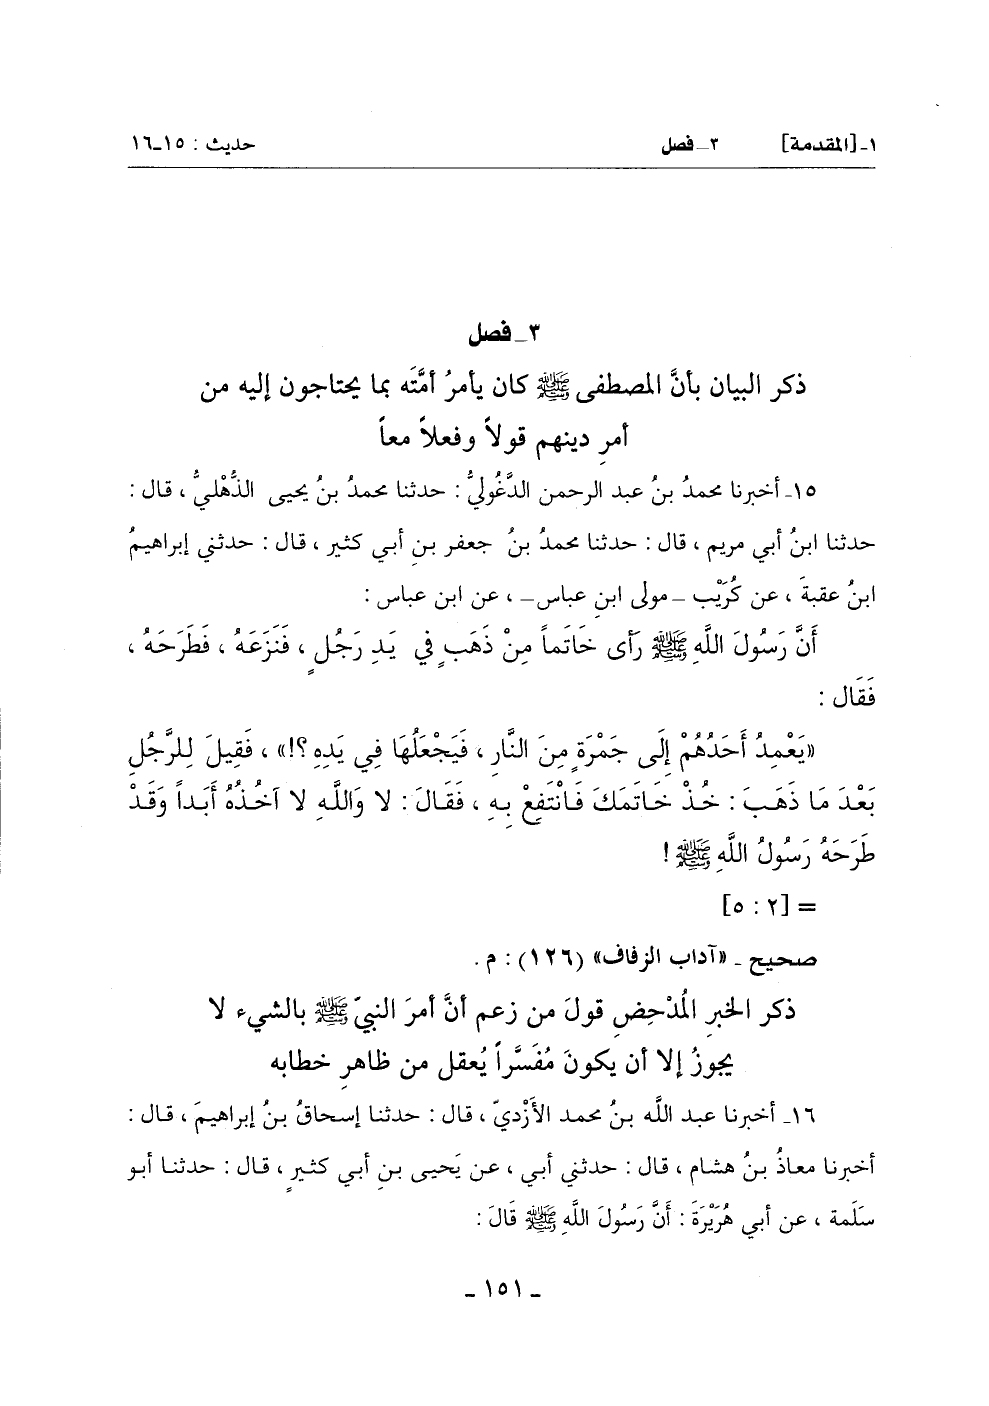 ١ـ [المقدمة] ٣ـ فصل حديث : ١٥ـ١٦
٣ـ فصل
ذكر البيان بأنَّ المصطفى ﷺ كان يأمرُ أمَّتَه بما يحتاجون إليه من
أمرِ دينهم قولاً وفعلاً معاً
١٥ـ أخبرنا محمدُ بنُ عبد الرحمن الدَّغُوليُّ : حدثنا محمدُ بنُ يحيى الذُّهْليُّ ، قال :
حدثنا ابنُ أبي مريم ، قال : حدثنا محمدُ بنُ جعفر بنِ أبي كثير ، قال : حدثني إبراهيمُ
ابنُ عقبةَ ، عن كُرَيْب ـ مولى ابنِ عباس ـ ، عن ابن عباس :
أَنَّ رَسُولَ اللَّهِ ﷺ رَأى خَاتَماً مِنْ ذَهَبٍ في يَدِ رَجُلٍ ، فَنَزَعَهُ ، فَطَرَحَهُ ،
فَقَال :
«يَعْمِدُ أَحَدُهُمْ إِلَى جَمْرَةٍ مِنَ النَّارِ ، فَيَجْعَلُهَا فِي يَدِهِ ؟!» ، فَقِيلَ لِلرَّجُلِ
بَعْدَ مَا ذَهَبَ : خُذْ خَاتَمَكَ فَانْتَفِعْ بِهِ ، فَقَالَ : لا وَاللَّهِ لا آخُذُهُ أَبَداً وَقَدْ
طَرَحَهُ رَسُولُ اللَّهِ ﷺ !
= [٢ : ٥]
صحيح ـ «آداب الزفاف» (١٢٦) : م .
ذكر الخبرِ المُدْحِضِ قولَ من زعم أنَّ أمرَ النبيّ ﷺ بالشيء لا
يجوزُ إلا أن يكونَ مُفَسَّراً يُعقل من ظاهرِ خطابه
١٦ـ أخبرنا عبد اللَّه بنُ محمد الأَزْديّ ، قال : حدثنا إسحاقُ بنُ إبراهيمَ ، قال :
أخبرنا معاذُ بنُ هشام ، قال : حدثني أبي ، عن يَحيى بنِ أبي كثيرٍ ، قال : حدثنا أبو
سَلَمة ، عن أبي هُرَيْرَةَ : أَنَّ رَسُولَ اللَّهِ ﷺ قَالَ :
ـ ١٥١ ـ